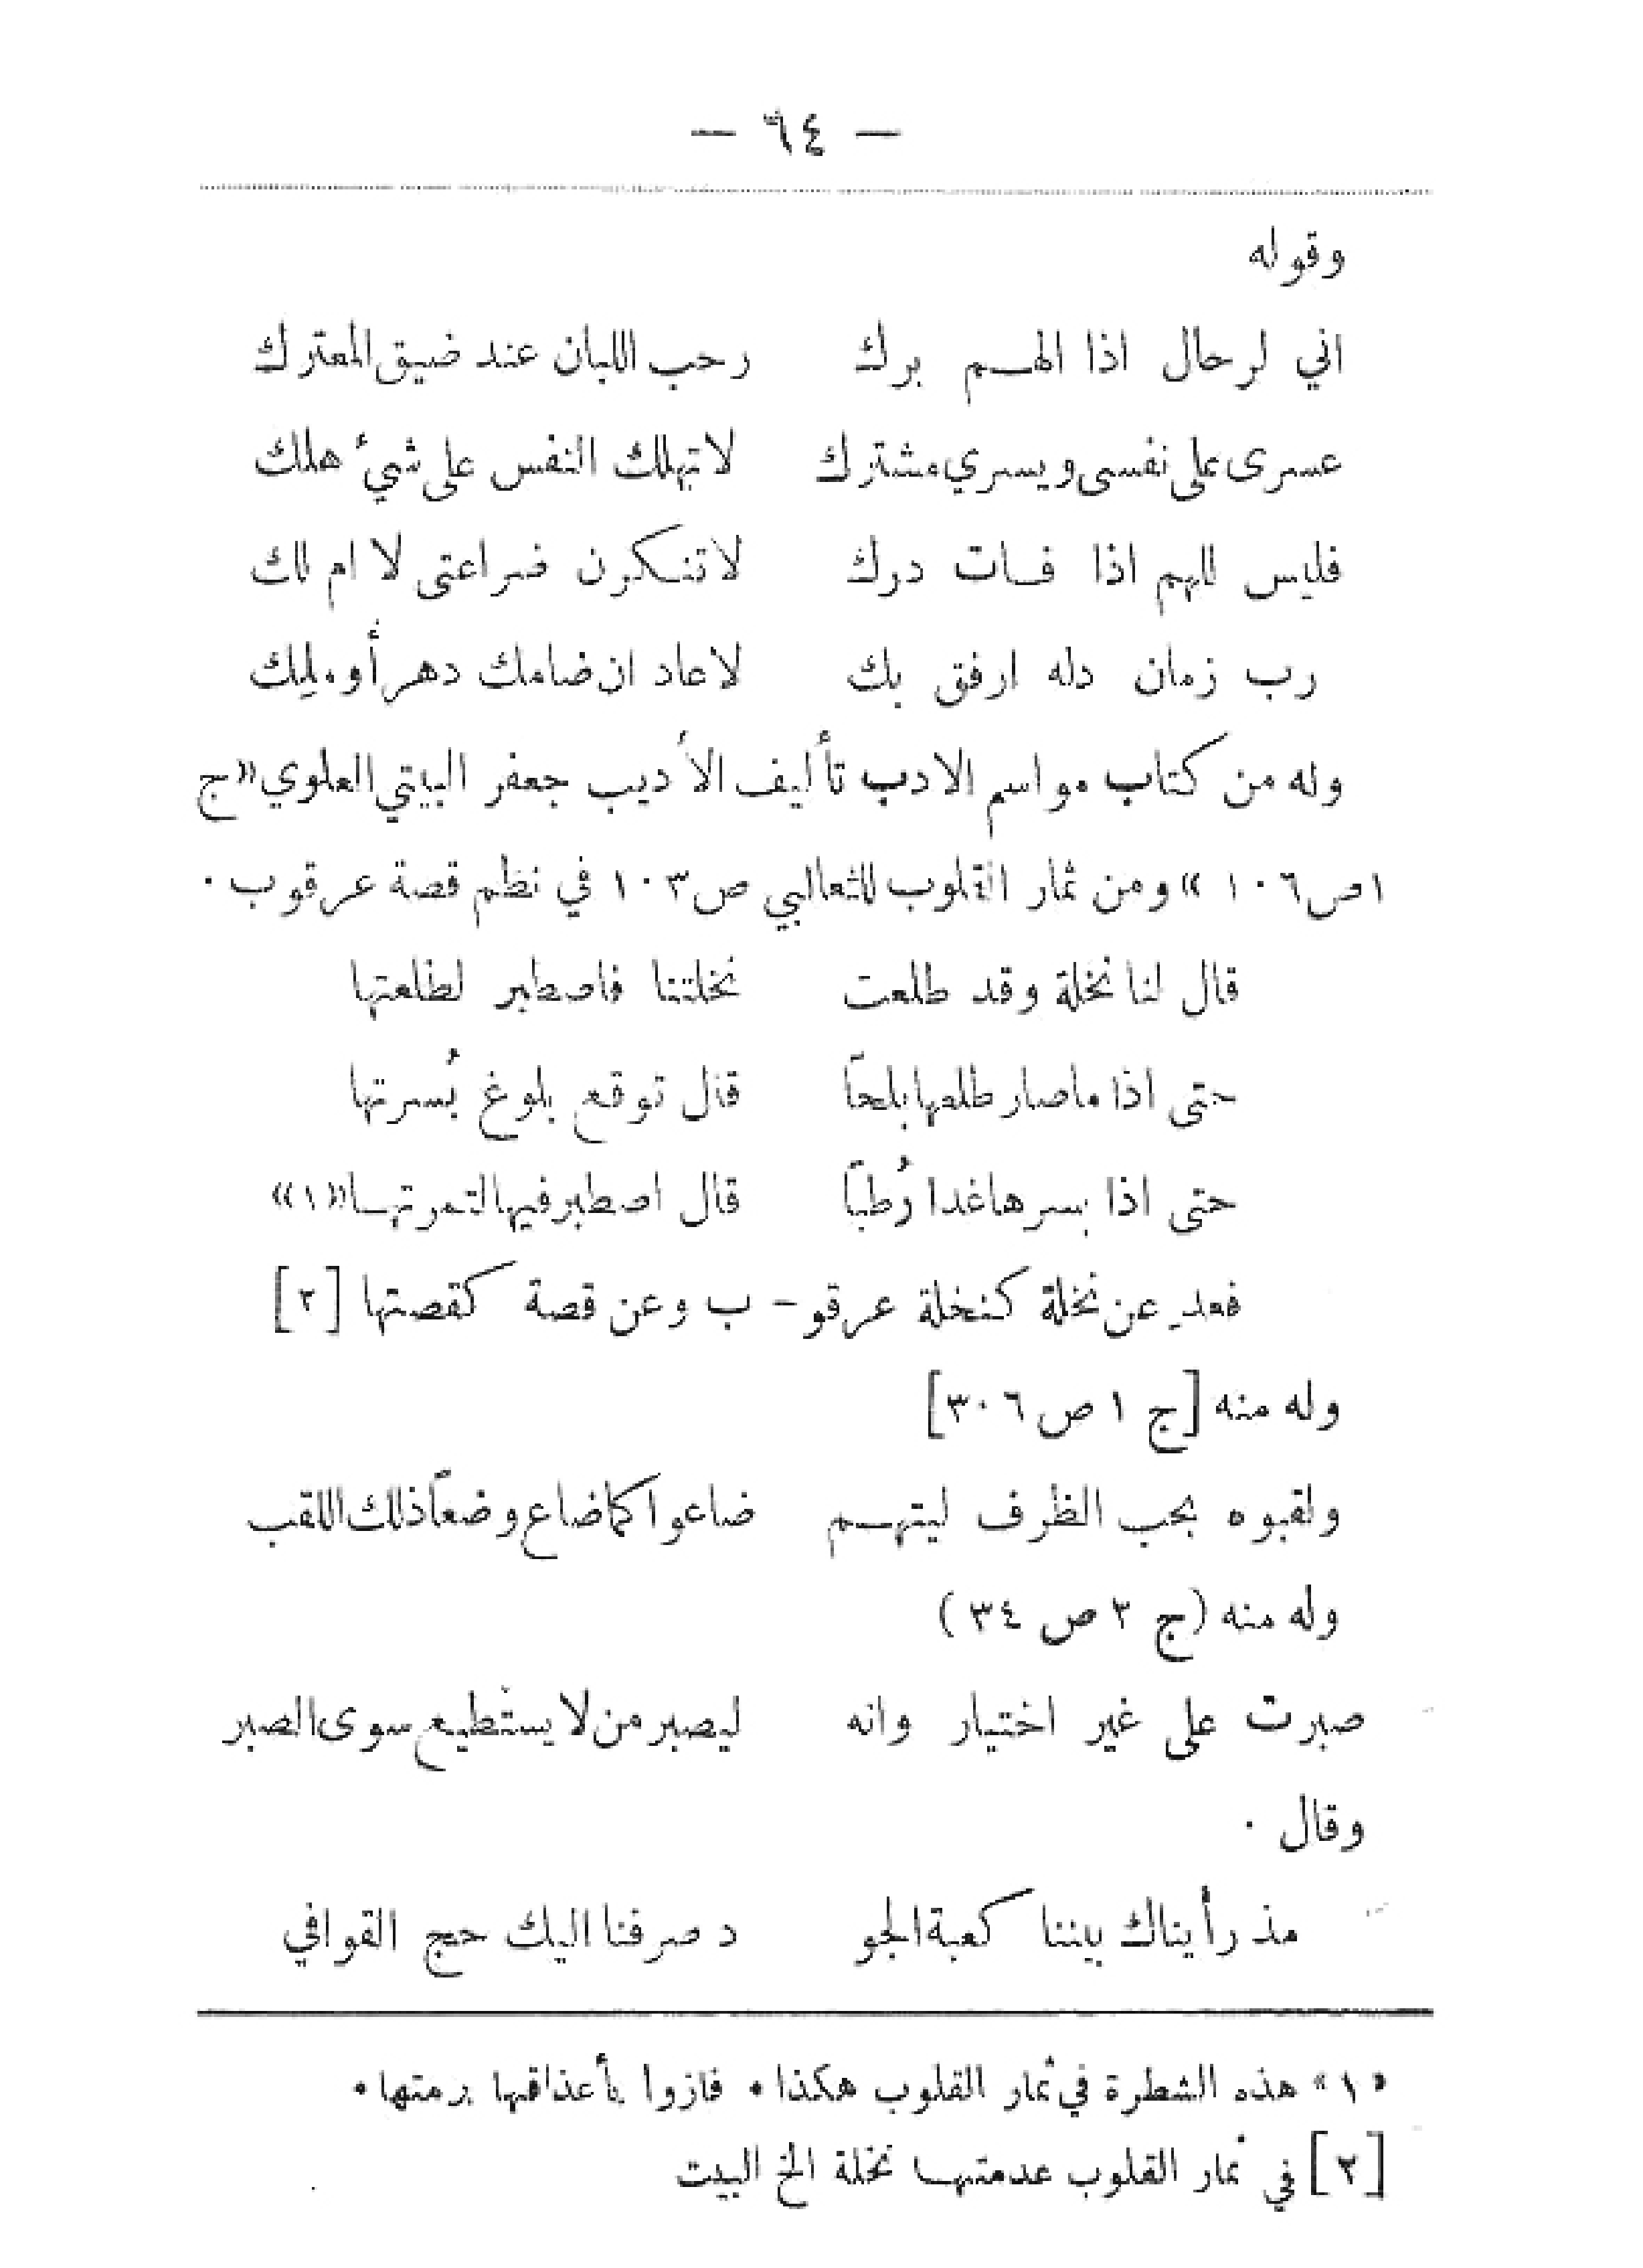 — ٦٤ —
وقوله
اني لرحال اذا الهم برك رحب اللبان عند ضيق المعترك
عسرى على نفسى ويسري مشترك لاتهلك النفس على شيء هلك
فليس للهم اذا فات درك لاتنكرن ضراعتى لا ام لك
رب زمان دله ارفق بك لاعاد ان ضامك دهر أو ملِك
وله من كتاب مواسم الادب تأليف الأديب جعفر البيتي العلوي «ج
١ص١٠٦» ومن ثمار القلوب للثعالبي ص١٠٣ في نظم قصة عرقوب ٠
قال لنا نخلة وقد طلعت نخلتنا فاصطبر لطلعتها
حتى اذا ماصار طلعها بلحاً قال توقع بلوغ بُسرتها
حتى اذا بسرها غدا رُطباً قال اصطبر فيها لتمرتها«١»
فعد عن نخلة كنخلة عرقو- ب وعن قصة كقصتها [٢]
وله منه [ج ١ ص ٣٠٦]
ولقبوه بحب الظرف ليتهم ضاعوا كماضاع وضعاً ذلك اللقب
وله منه (ج ٢ ص ٣٤)
صبرت على غير اختيار وانه ليصبر من لا يستطيع سوى الصبر
وقال ٠
مذ رأيناك بيننا كعبة الجو د صرفنا اليك حج القوافي
«١» هذه الشطرة في ثمار القلوب هكذا ٠ فازوا بأعذاقها برمتها ٠
[٢] في ثمار القلوب عدمتها نخلة الخ البيت